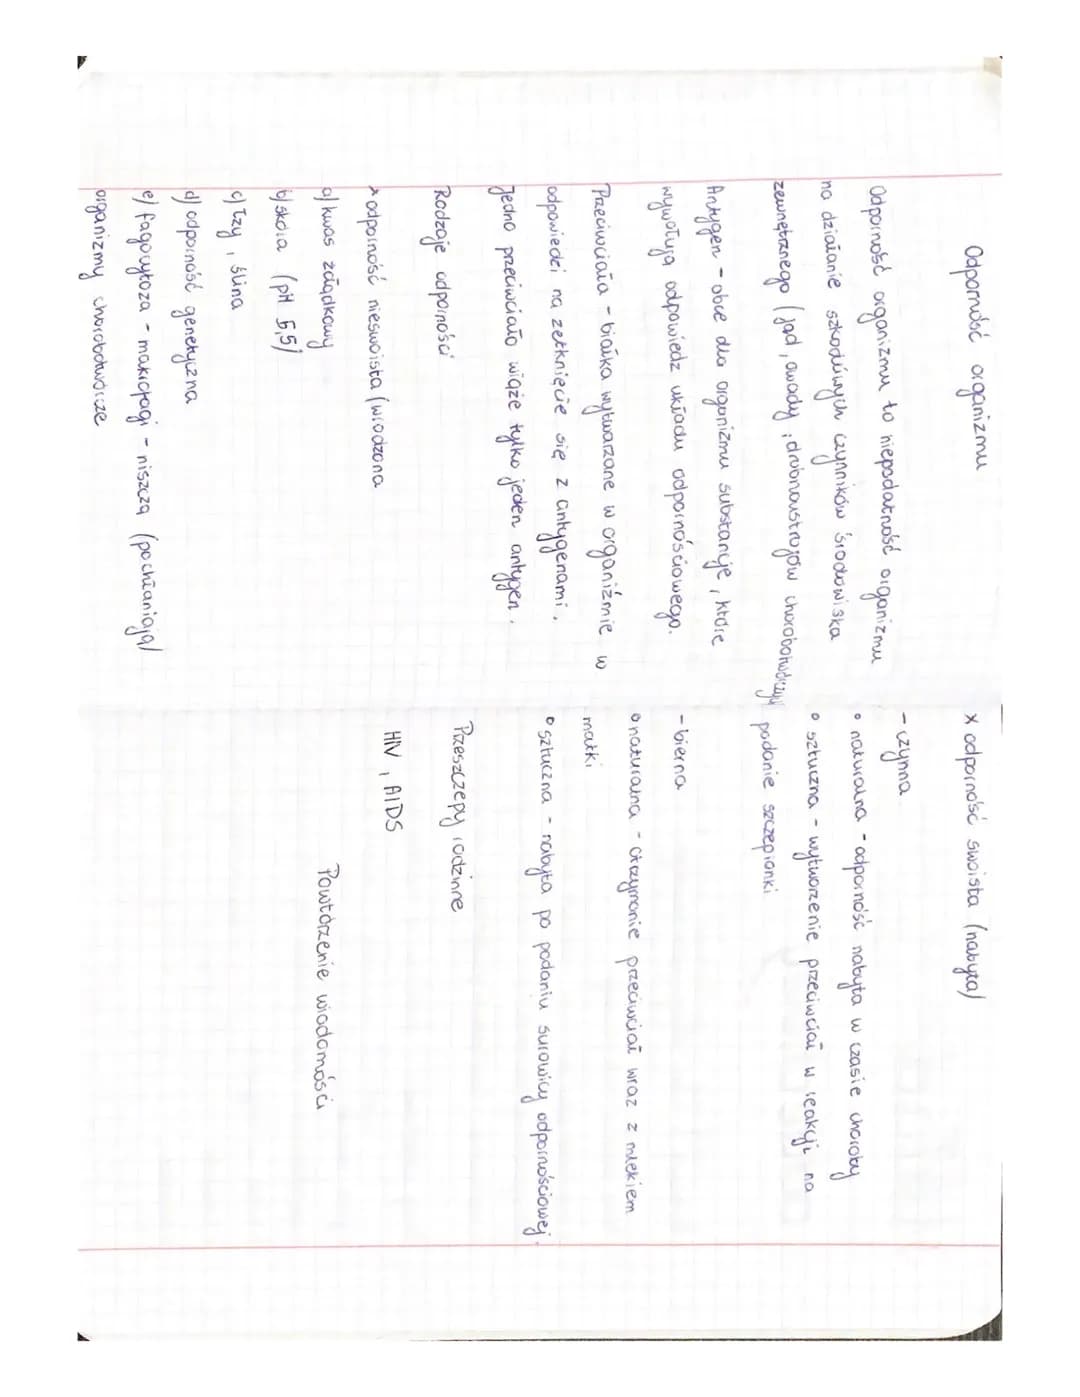 Odporność organizmu
Odporność organizmu to niepodatność organizmu
na działanie szkodliwych czynników środowiska
zewnętrznego (jad, owady, drobnoustrojów chorobotwórczych)
Antygen - obce dla organizmu substancje, które
wywołują odpowiedz układu odpornościowego.
Przeciwciała - białka wytwarzane w organiźmie w
odpowiedzi na zetknięcie się z antygenami.
Jedno przeciwciało wiąże tylko jeden antygen.
Rodzaje odporności
x odporność nieswoista (wrodzona
a) kwas żołądkowy
b) skóra (pH 5,5)
c) łzy, ślina
d) odporność genetyczna
e) fagocytoza - makrofagi - niszczą (pochłaniają)
organizmy chorobotwórcze
x odporność swoista (nabyta)
- czynna
° naturalna - odporność nabyta w czasie choroby
° sztuczna - wytworzenie przeciwciał w reakcji na
podanie szczepionki
- bierna
° naturalna - otrzymanie przeciwciał wraz z mlekiem
matki
° sztuczna - nabyta po podaniu surowicy odpornościowej.
Przeszczepy rodzinne
HIV, AIDS
Powtórzenie wiadomości